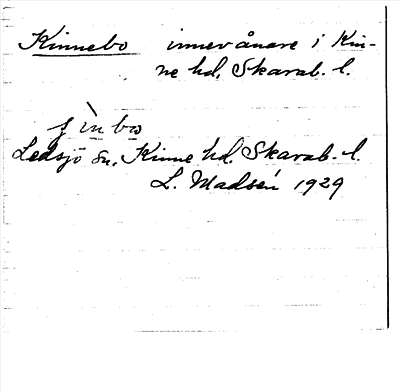 Kinnebo innevånare i Kin-
ne hd, Skarab. l.
Ledsjö sn, Kinne hd, Skarab. l.
L. Madsén 1929